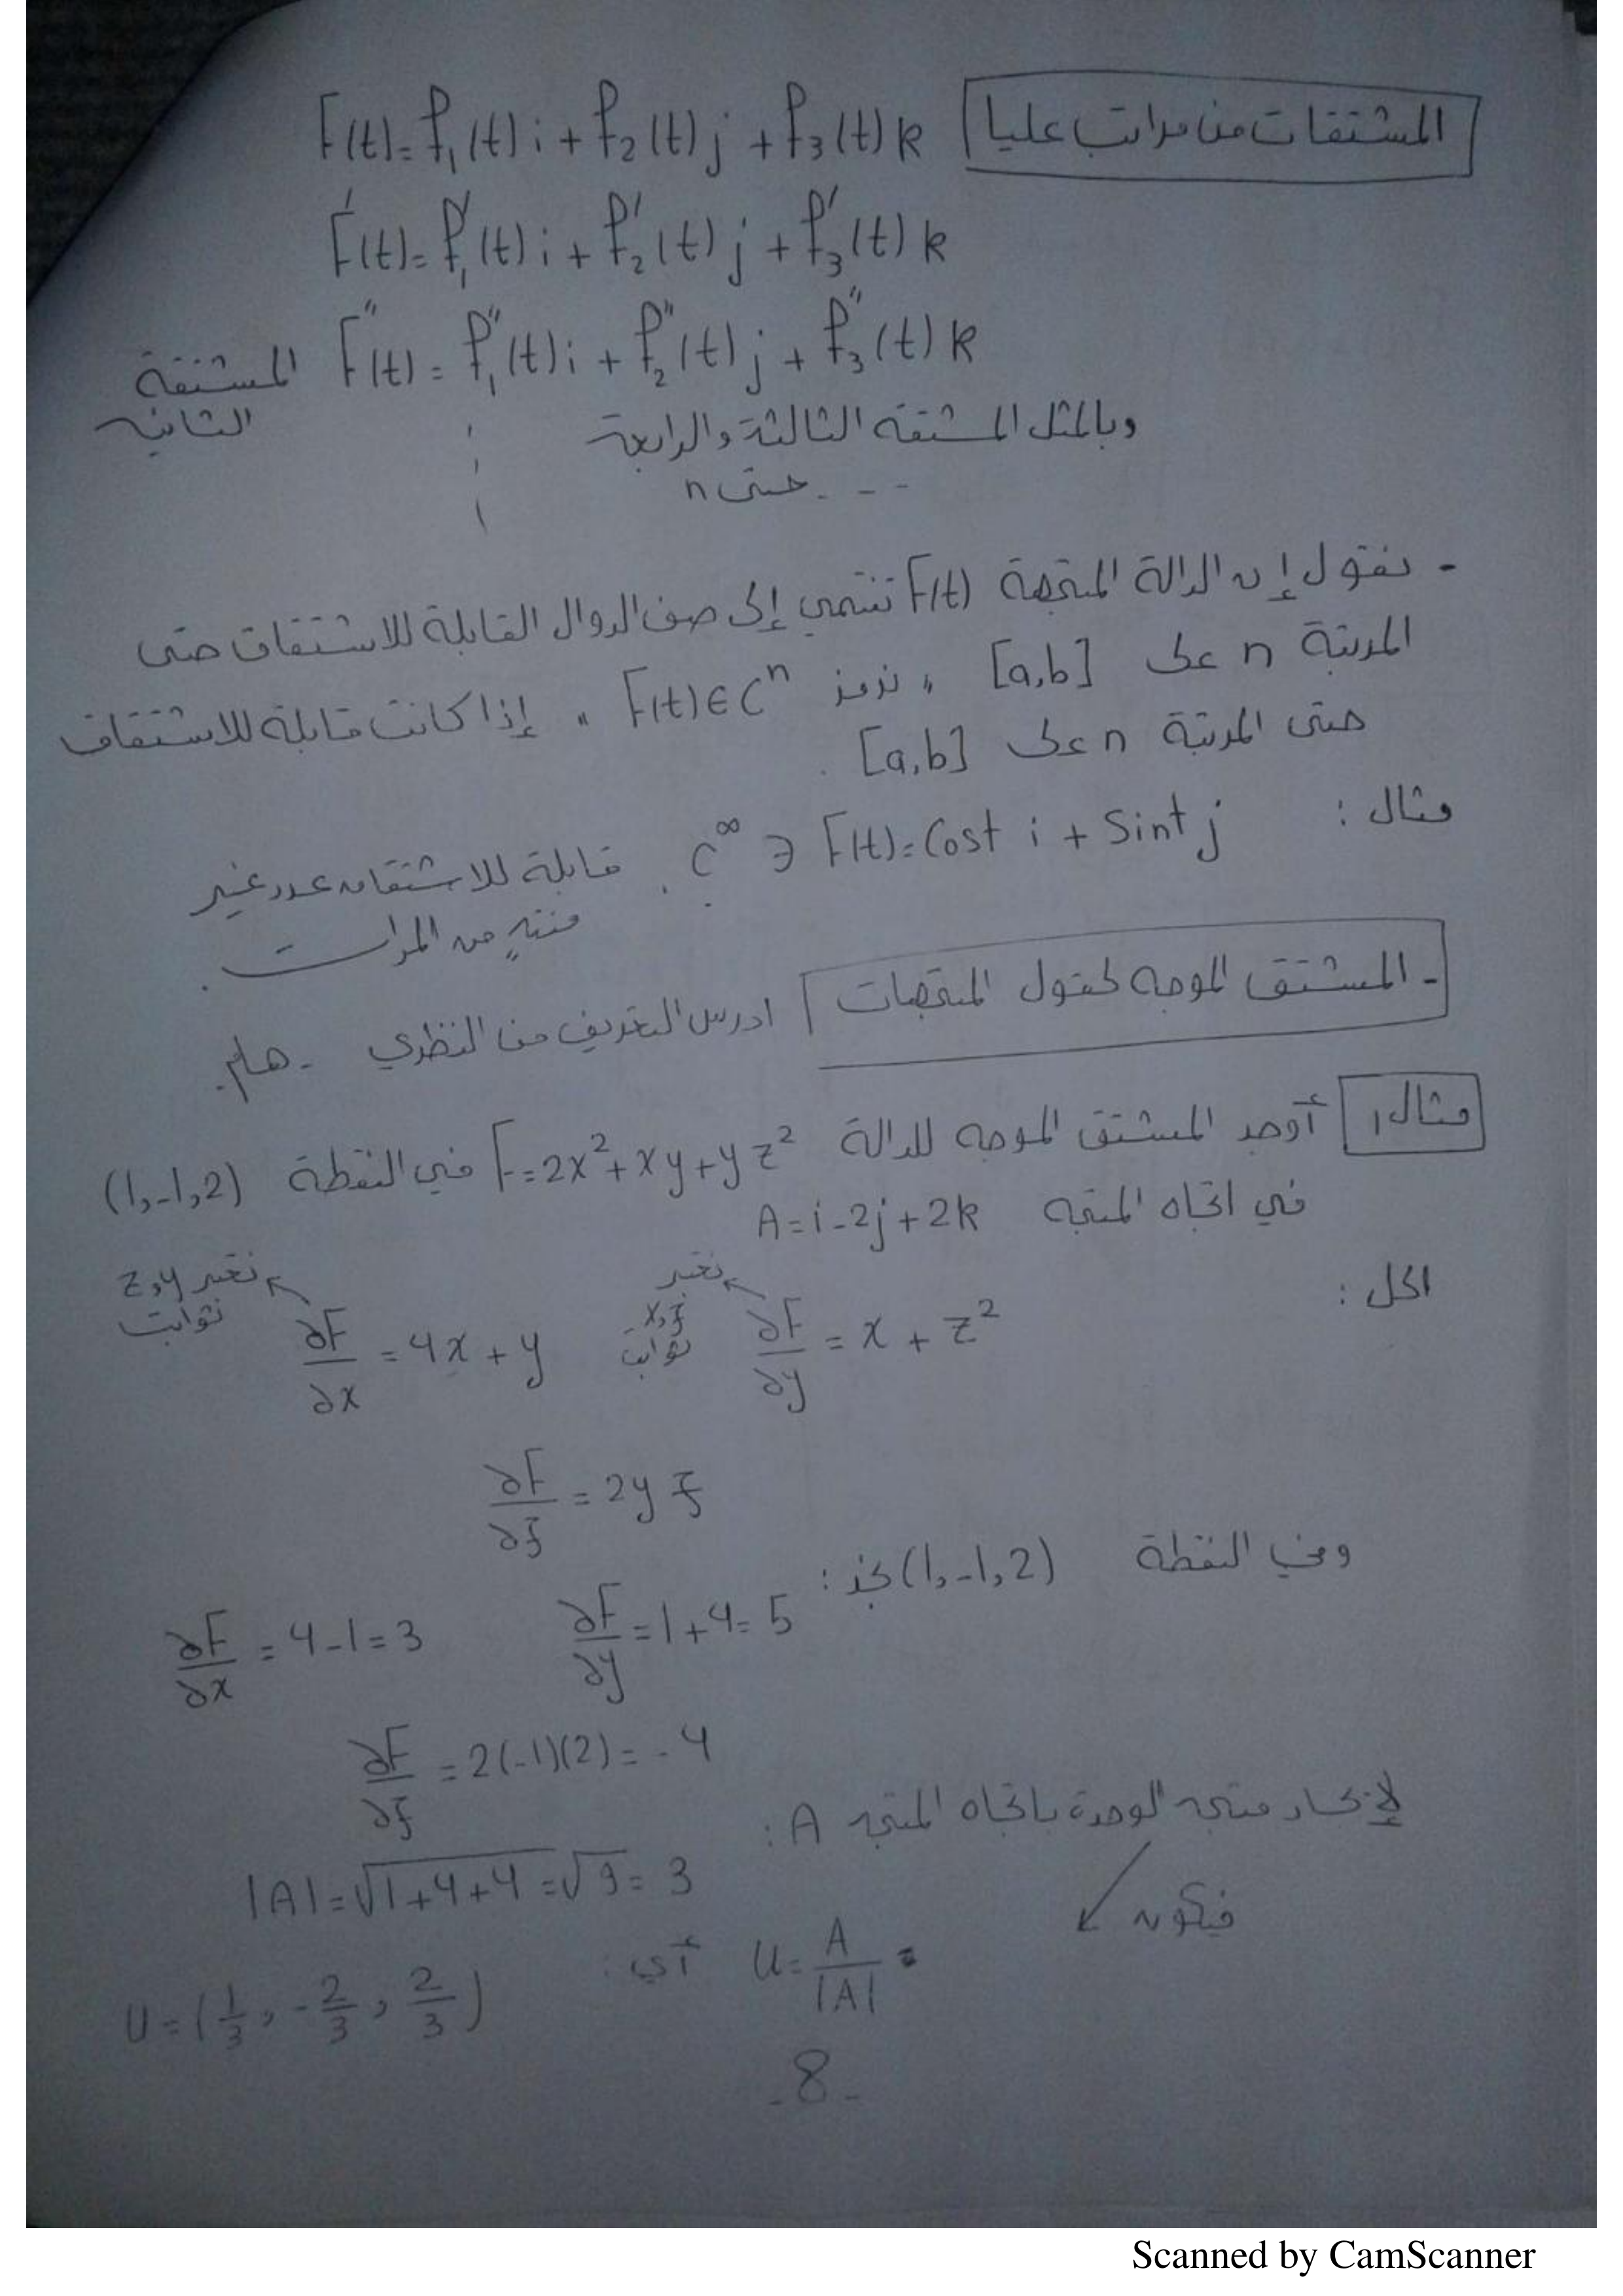 المشتقات من مراتب عليا F(t) = f₁(t) i + f₂(t) j + f₃(t) k
F'(t) = f₁'(t) i + f₂'(t) j + f₃'(t) k
F''(t) = f₁''(t) i + f₂''(t) j + f₃''(t) k المشتقة الثانية
وبالمثل المشتقة الثالثة والرابعة
--. حتى n
- نقول إن الدالة المتجهة F(t) تنتمي إلى صف الدوال القابلة للاشتقاق حتى
المرتبة n على [a,b] "نرمز F(t)∈Cⁿ" إذا كانت قابلة للاشتقاق
حتى المرتبة n على [a,b].
مثال : F(t) = Cost i + Sint j ∈ C^∞. قابلة للاشتقاق عدد غير
منتهٍ من المرات.
- المشتق الموجه لحقول المتجهات ادرس التعريف من النظري - هام.
مثال 1 أوجد المشتق الموجه للدالة F = 2x² + xy + yz² في النقطة (1,-1,2)
في اتجاه المتجه A = i - 2j + 2k
الحل :
∂F/∂x = 4x + y نعتبر z,y ثوابت ∂F/∂y = x + z² نعتبر x,z ثوابت
∂F/∂z = 2yz
وفي النقطة (1,-1,2) نجد :
∂F/∂x = 4 - 1 = 3 ∂F/∂y = 1 + 4 = 5
∂F/∂z = 2(-1)(2) = -4
لإيجاد متجه الوحدة باتجاه المتجه A :
|A| = √1+4+4 = √9 = 3
فيكون U = A/|A| أي : U = (1/3, -2/3, 2/3)
-8-
Scanned by CamScanner